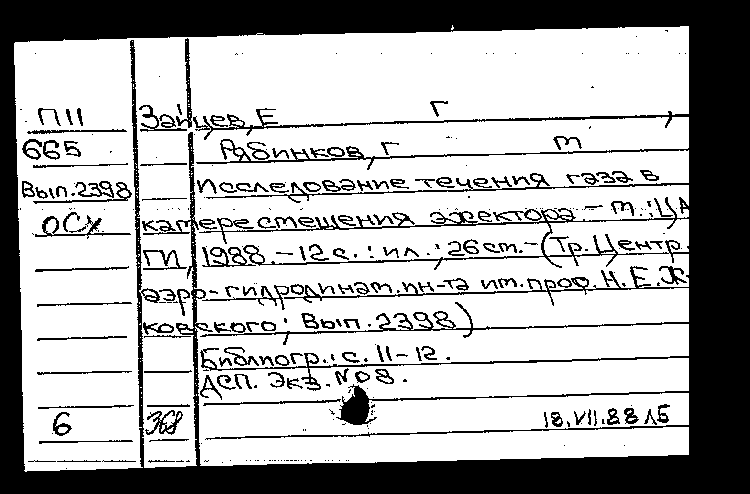 П11 Зайцев, Е Г ,
665 Рябинков, Г М
Вып.2398 Исследование течения газа в
ОСХ камере смешения эжектора. - М. : ЦА
ГИ, 1988. - 12 с. : ил. ; 26 см. - (Тр. Центр.
аэро-гидродинам. ин-та им. проф. Н.Е. Ж
ковского; Вып. 2398)
Библиогр.: с. 11-12.
ДСП. Экз. №08.
6 368 18.VII.88 ЛБ